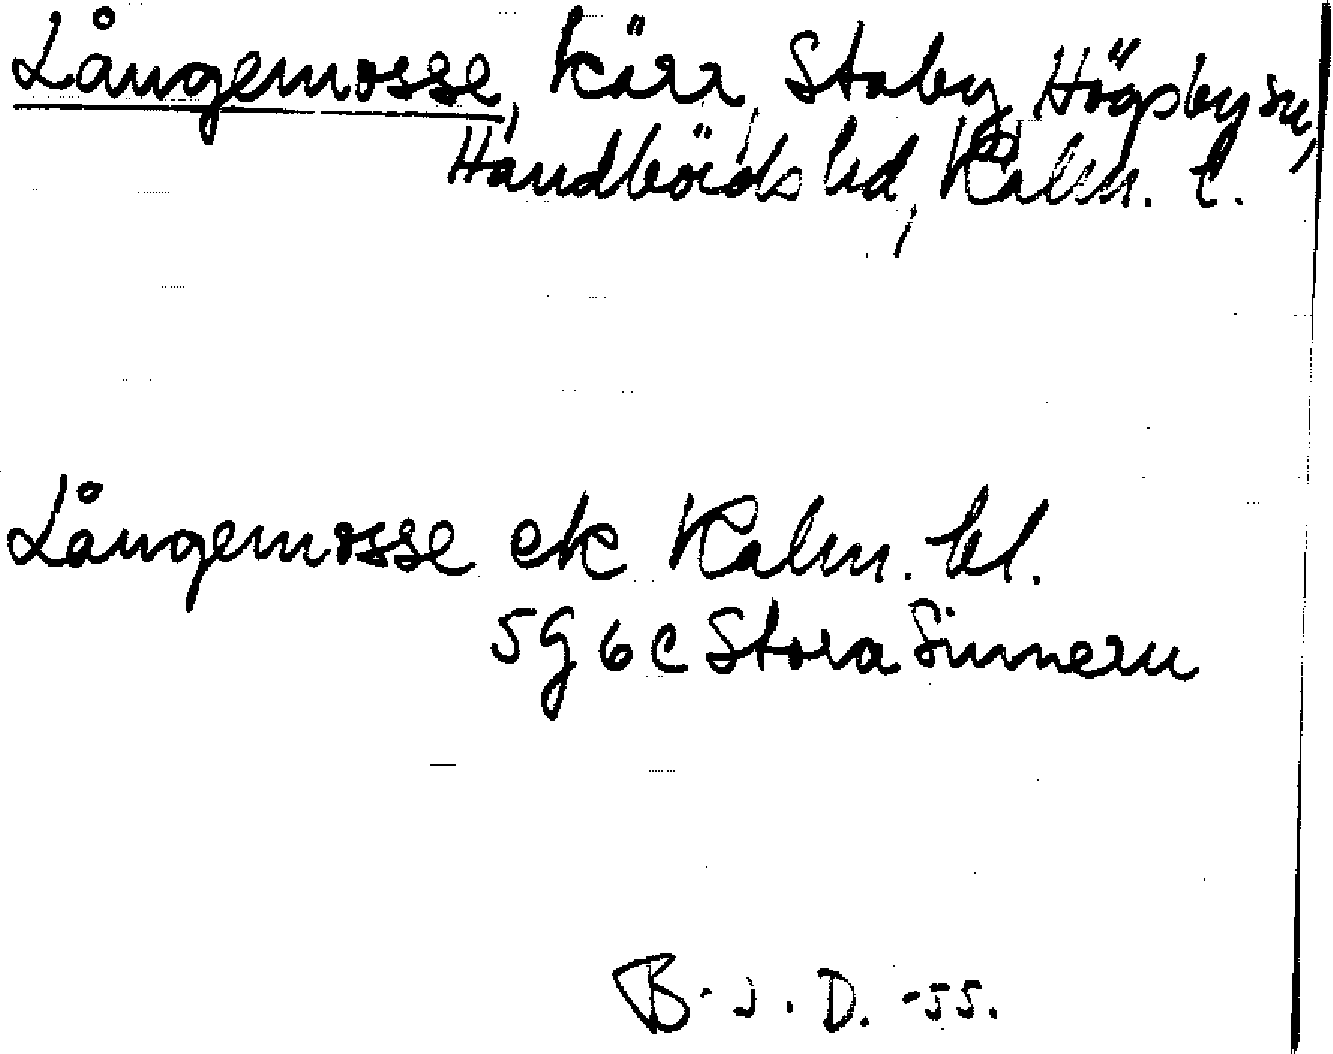 Långemosse, kärr, Staby, Högsby sn,
Handbörds hd, Kalm. l.
Långemosse ek Kalm. bl.
5g 6c Stora Sinnern
B. J. D. -55.